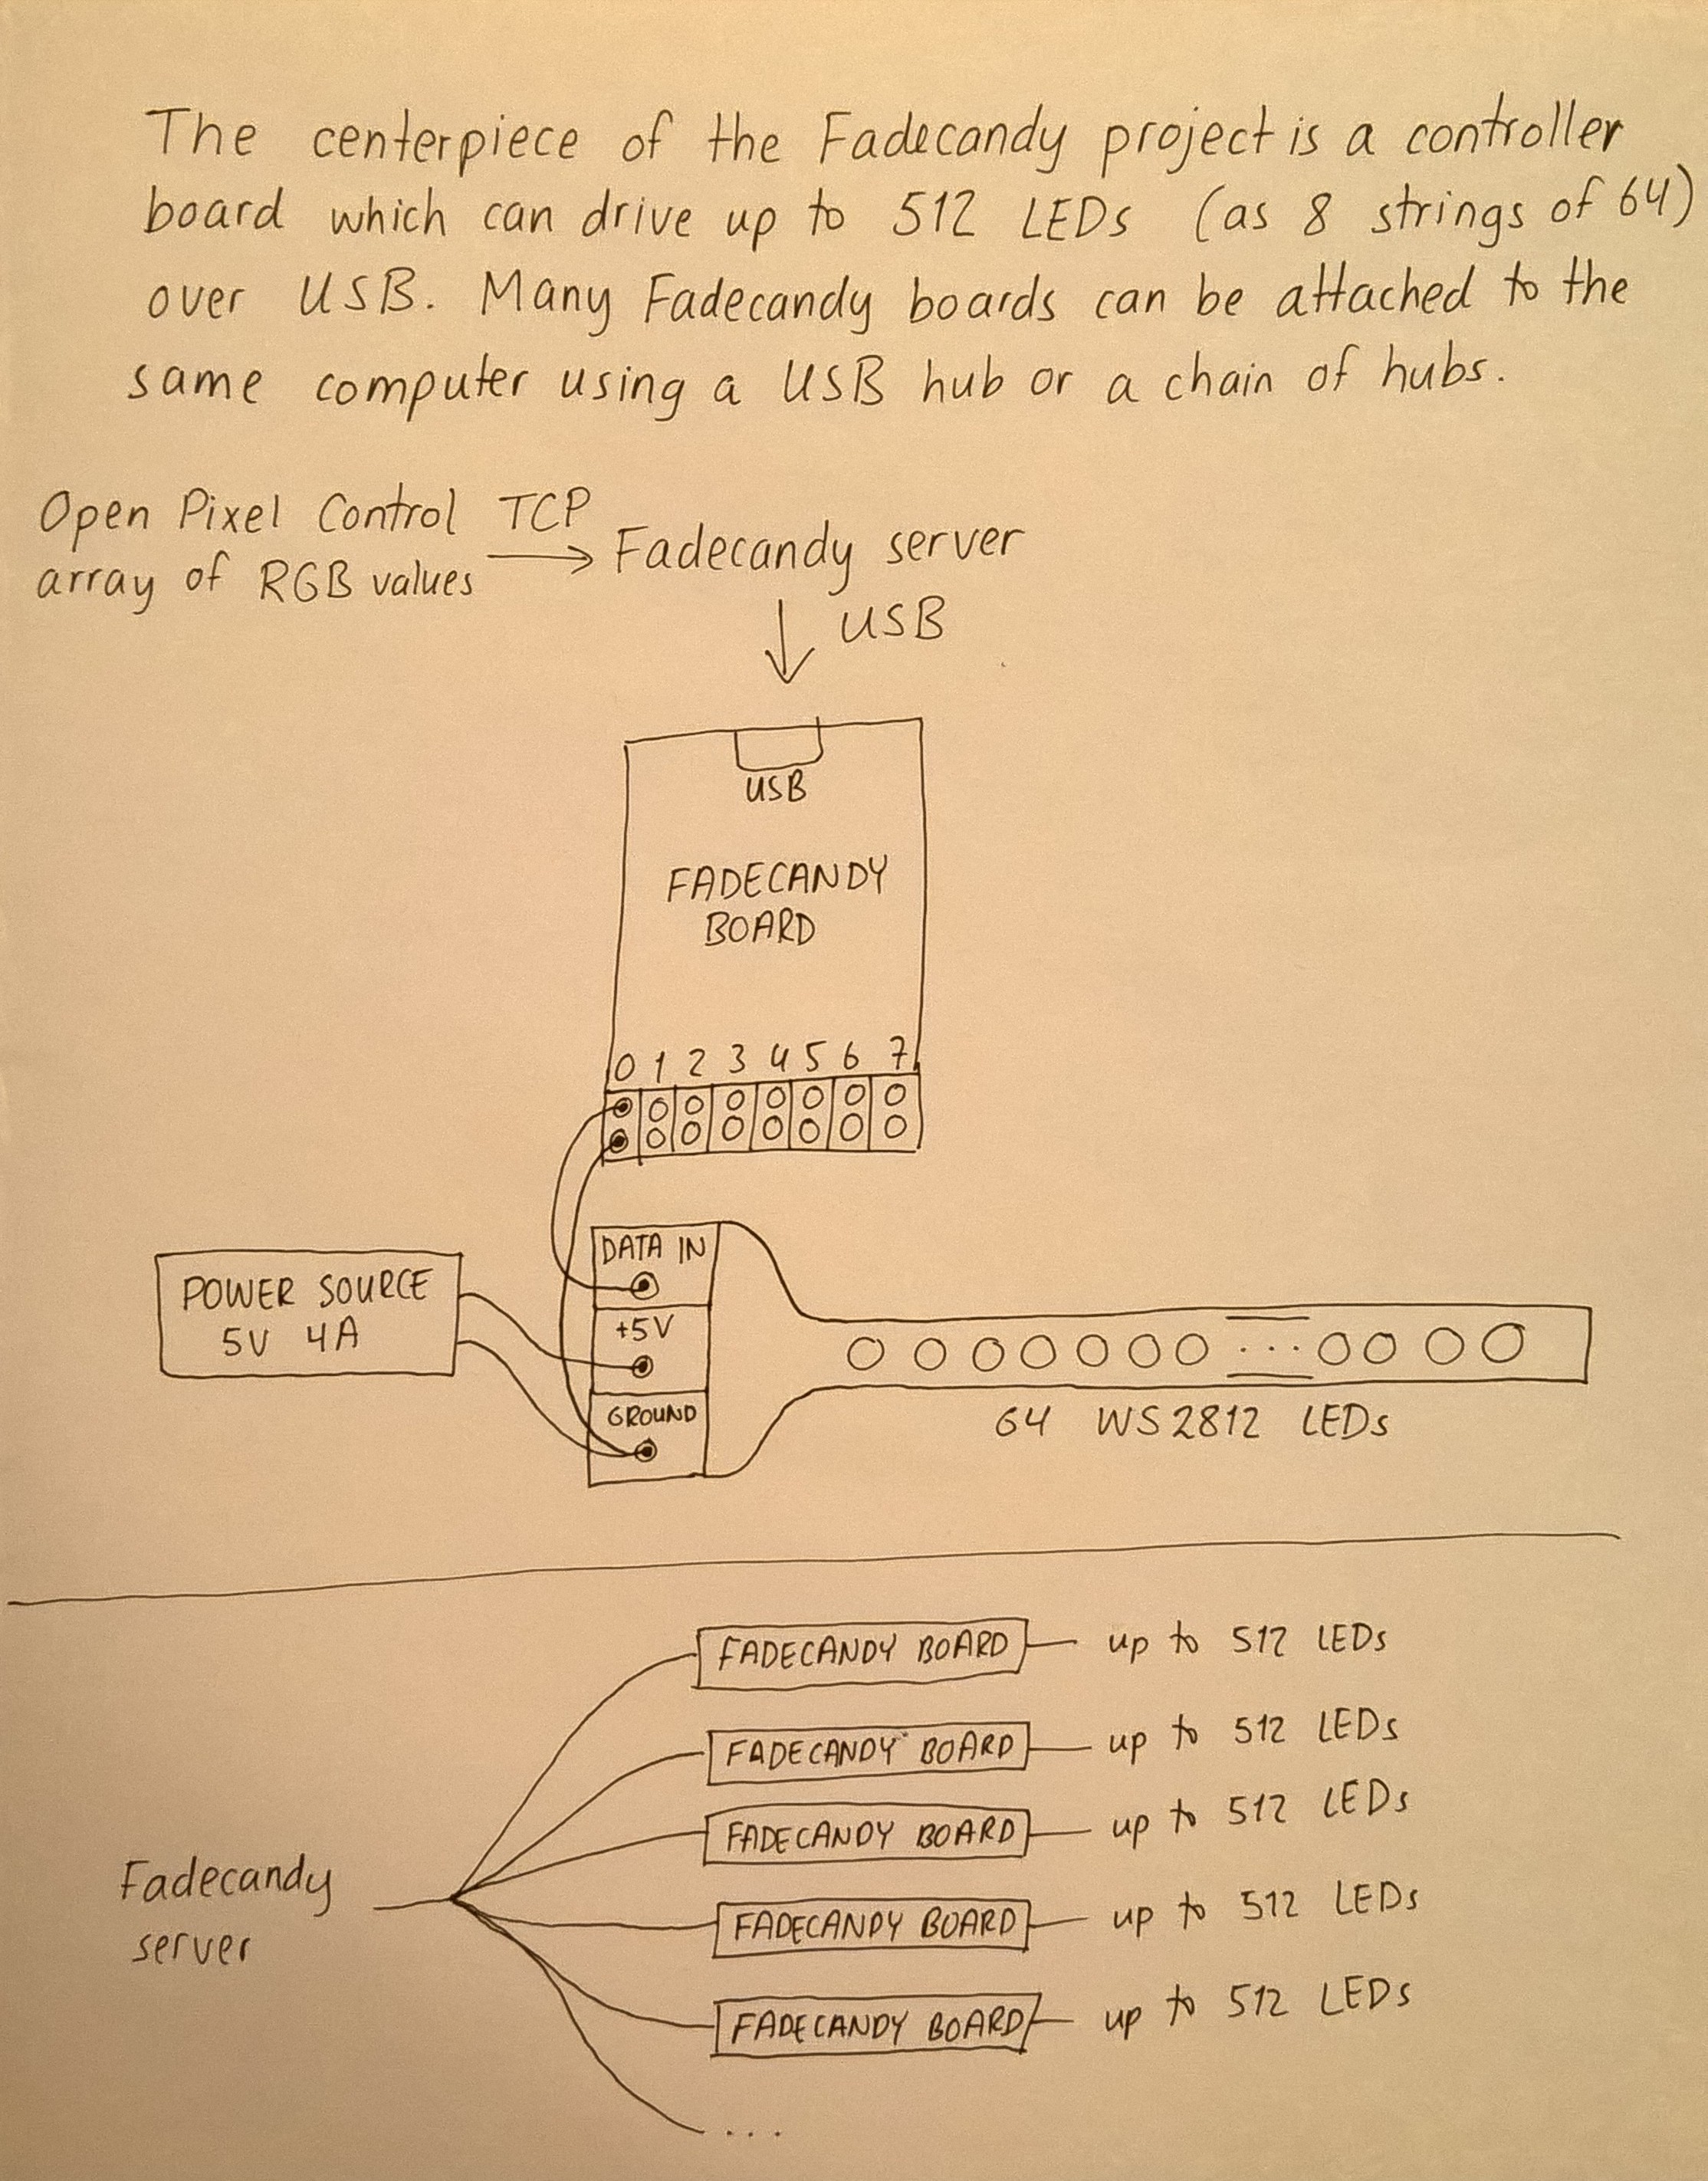 The centerpiece of the Fadecandy project is a controller
board which can drive up to 512 LEDs (as 8 strings of 64)
over USB. Many Fadecandy boards can be attached to the
same computer using a USB hub or a chain of hubs.
Open Pixel Control
array of RGB values
TCP
Fadecandy server
USB
USB
FADECANDY
BOARD
0 1 2 3 4 5 6 7
POWER SOURCE
5V 4A
DATA IN
+5V
GROUND
...
64 WS2812 LEDs
Fadecandy
server
FADECANDY BOARD up to 512 LEDs
FADECANDY BOARD up to 512 LEDs
FADECANDY BOARD up to 512 LEDs
FADECANDY BOARD up to 512 LEDs
FADECANDY BOARD up to 512 LEDs
...